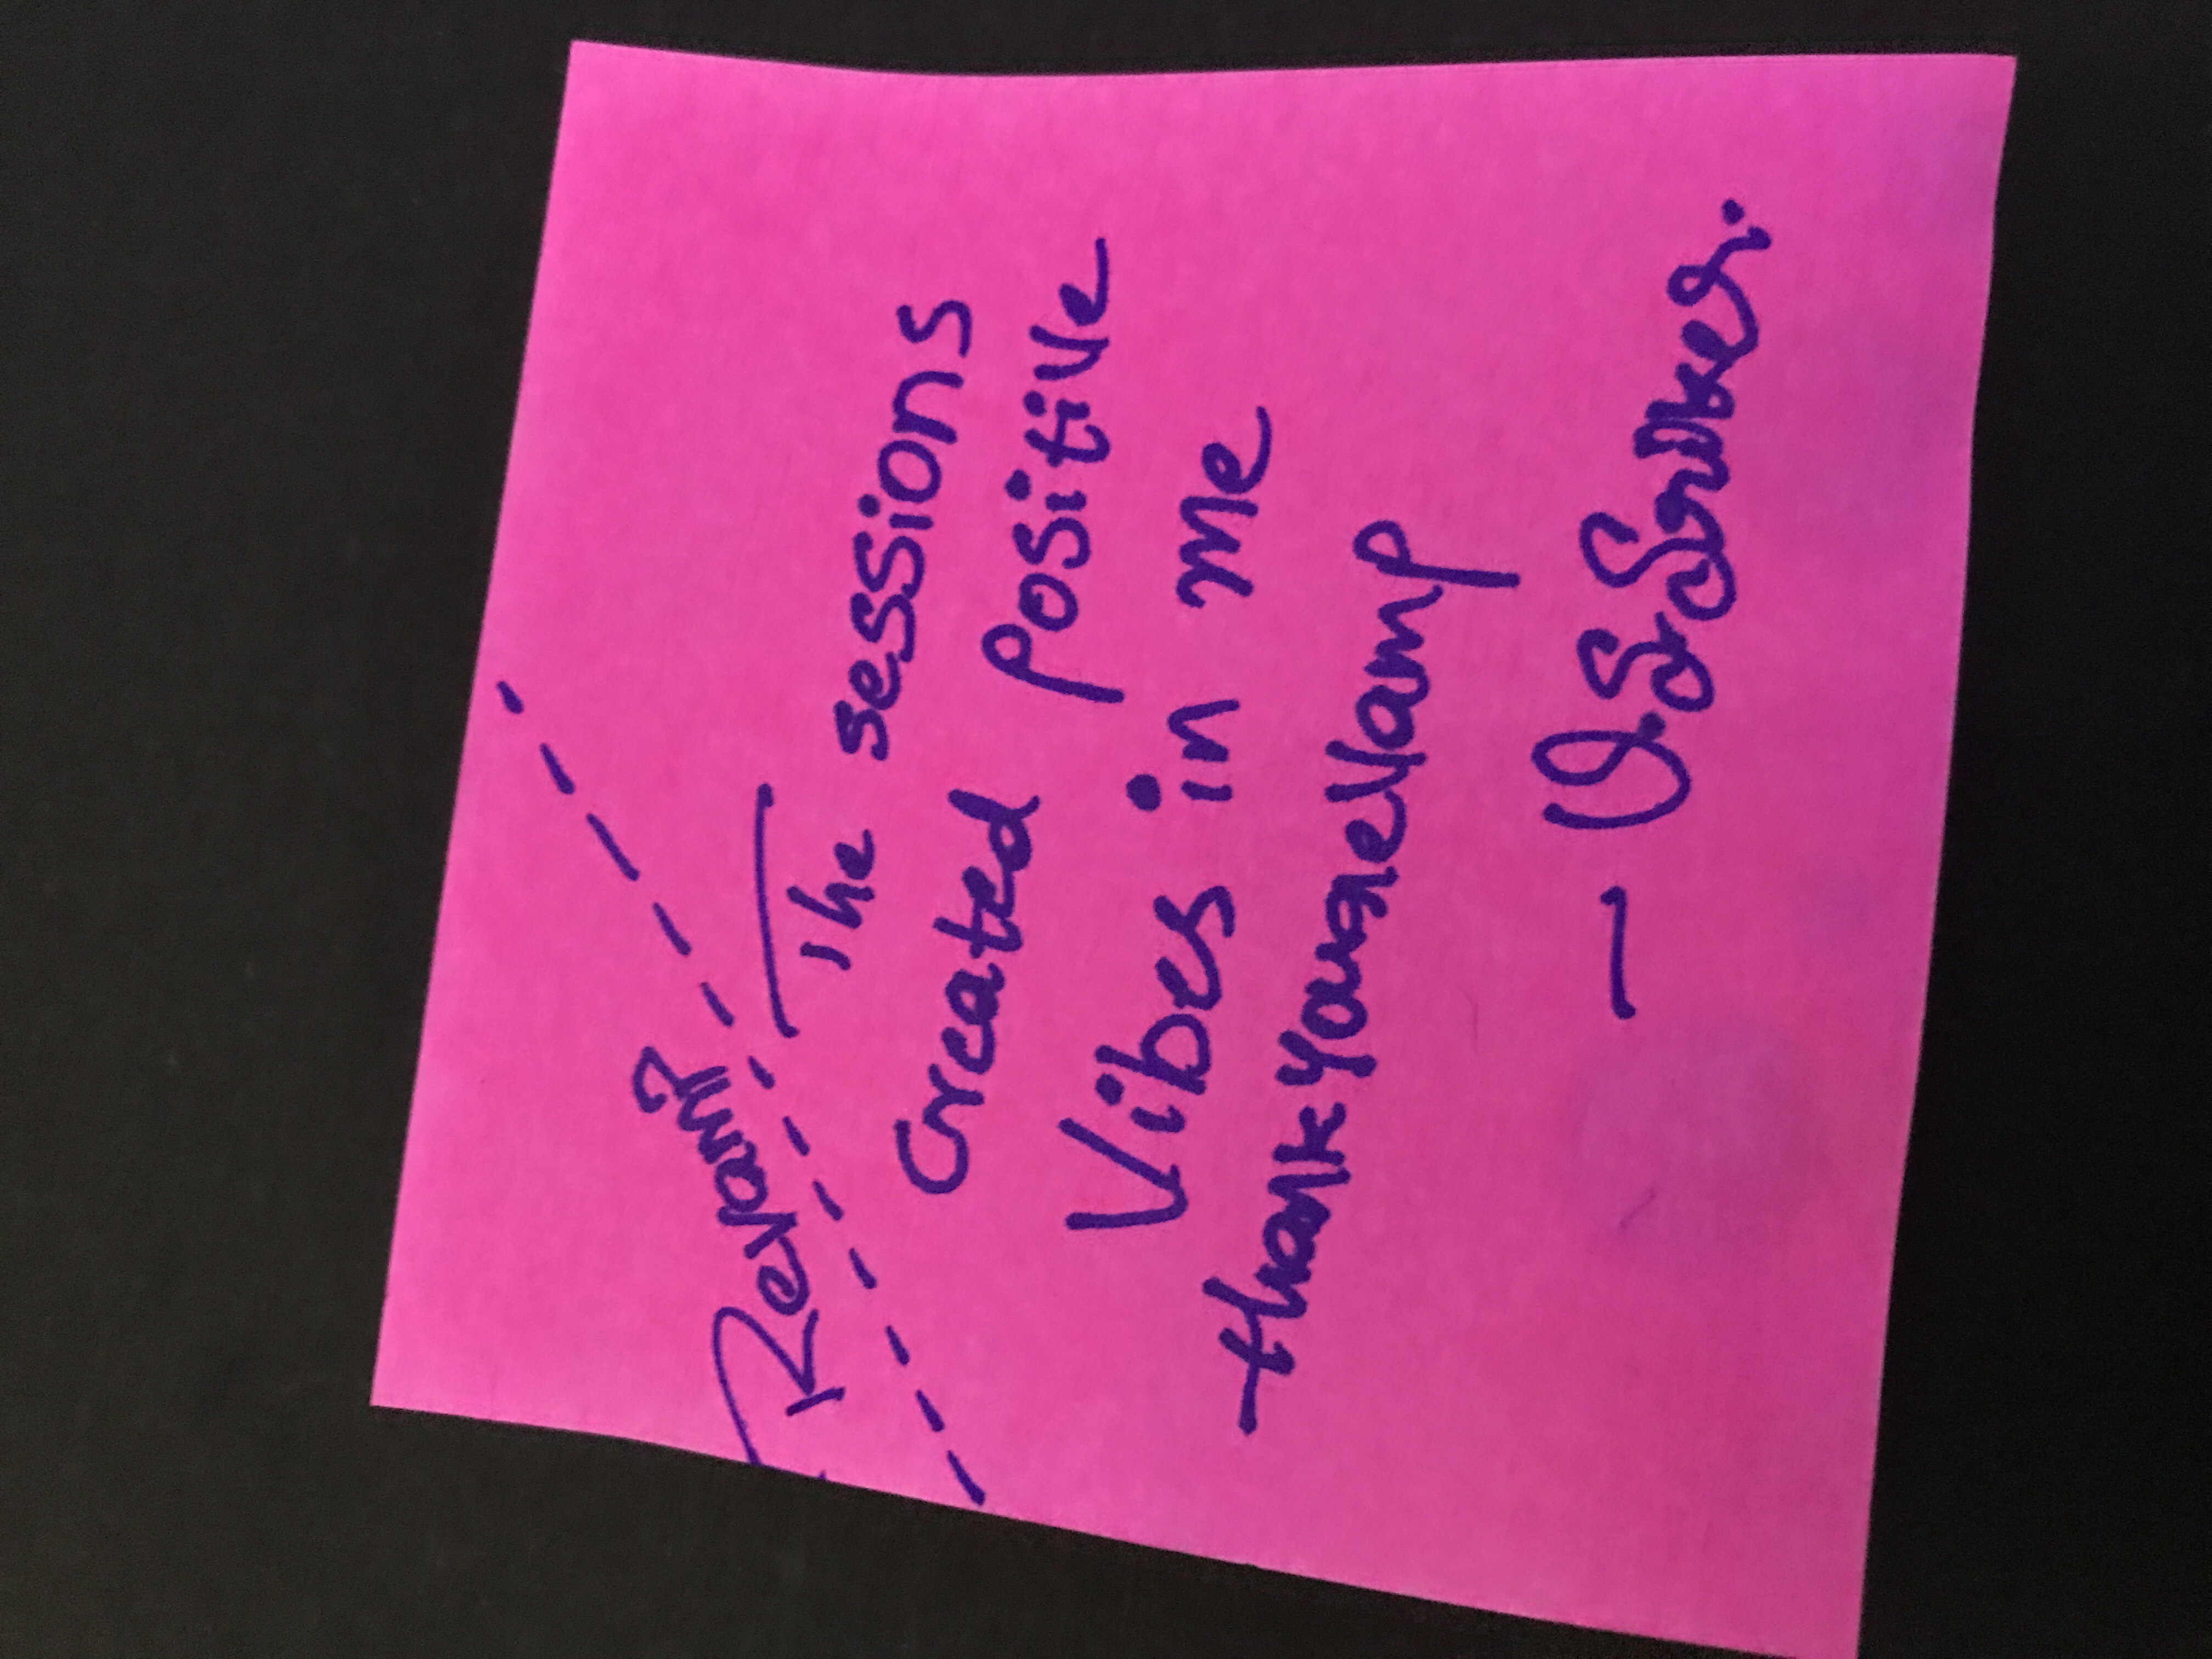 Revamp
The sessions
Created positive
Vibes in me
thank you revamp
- V.S.